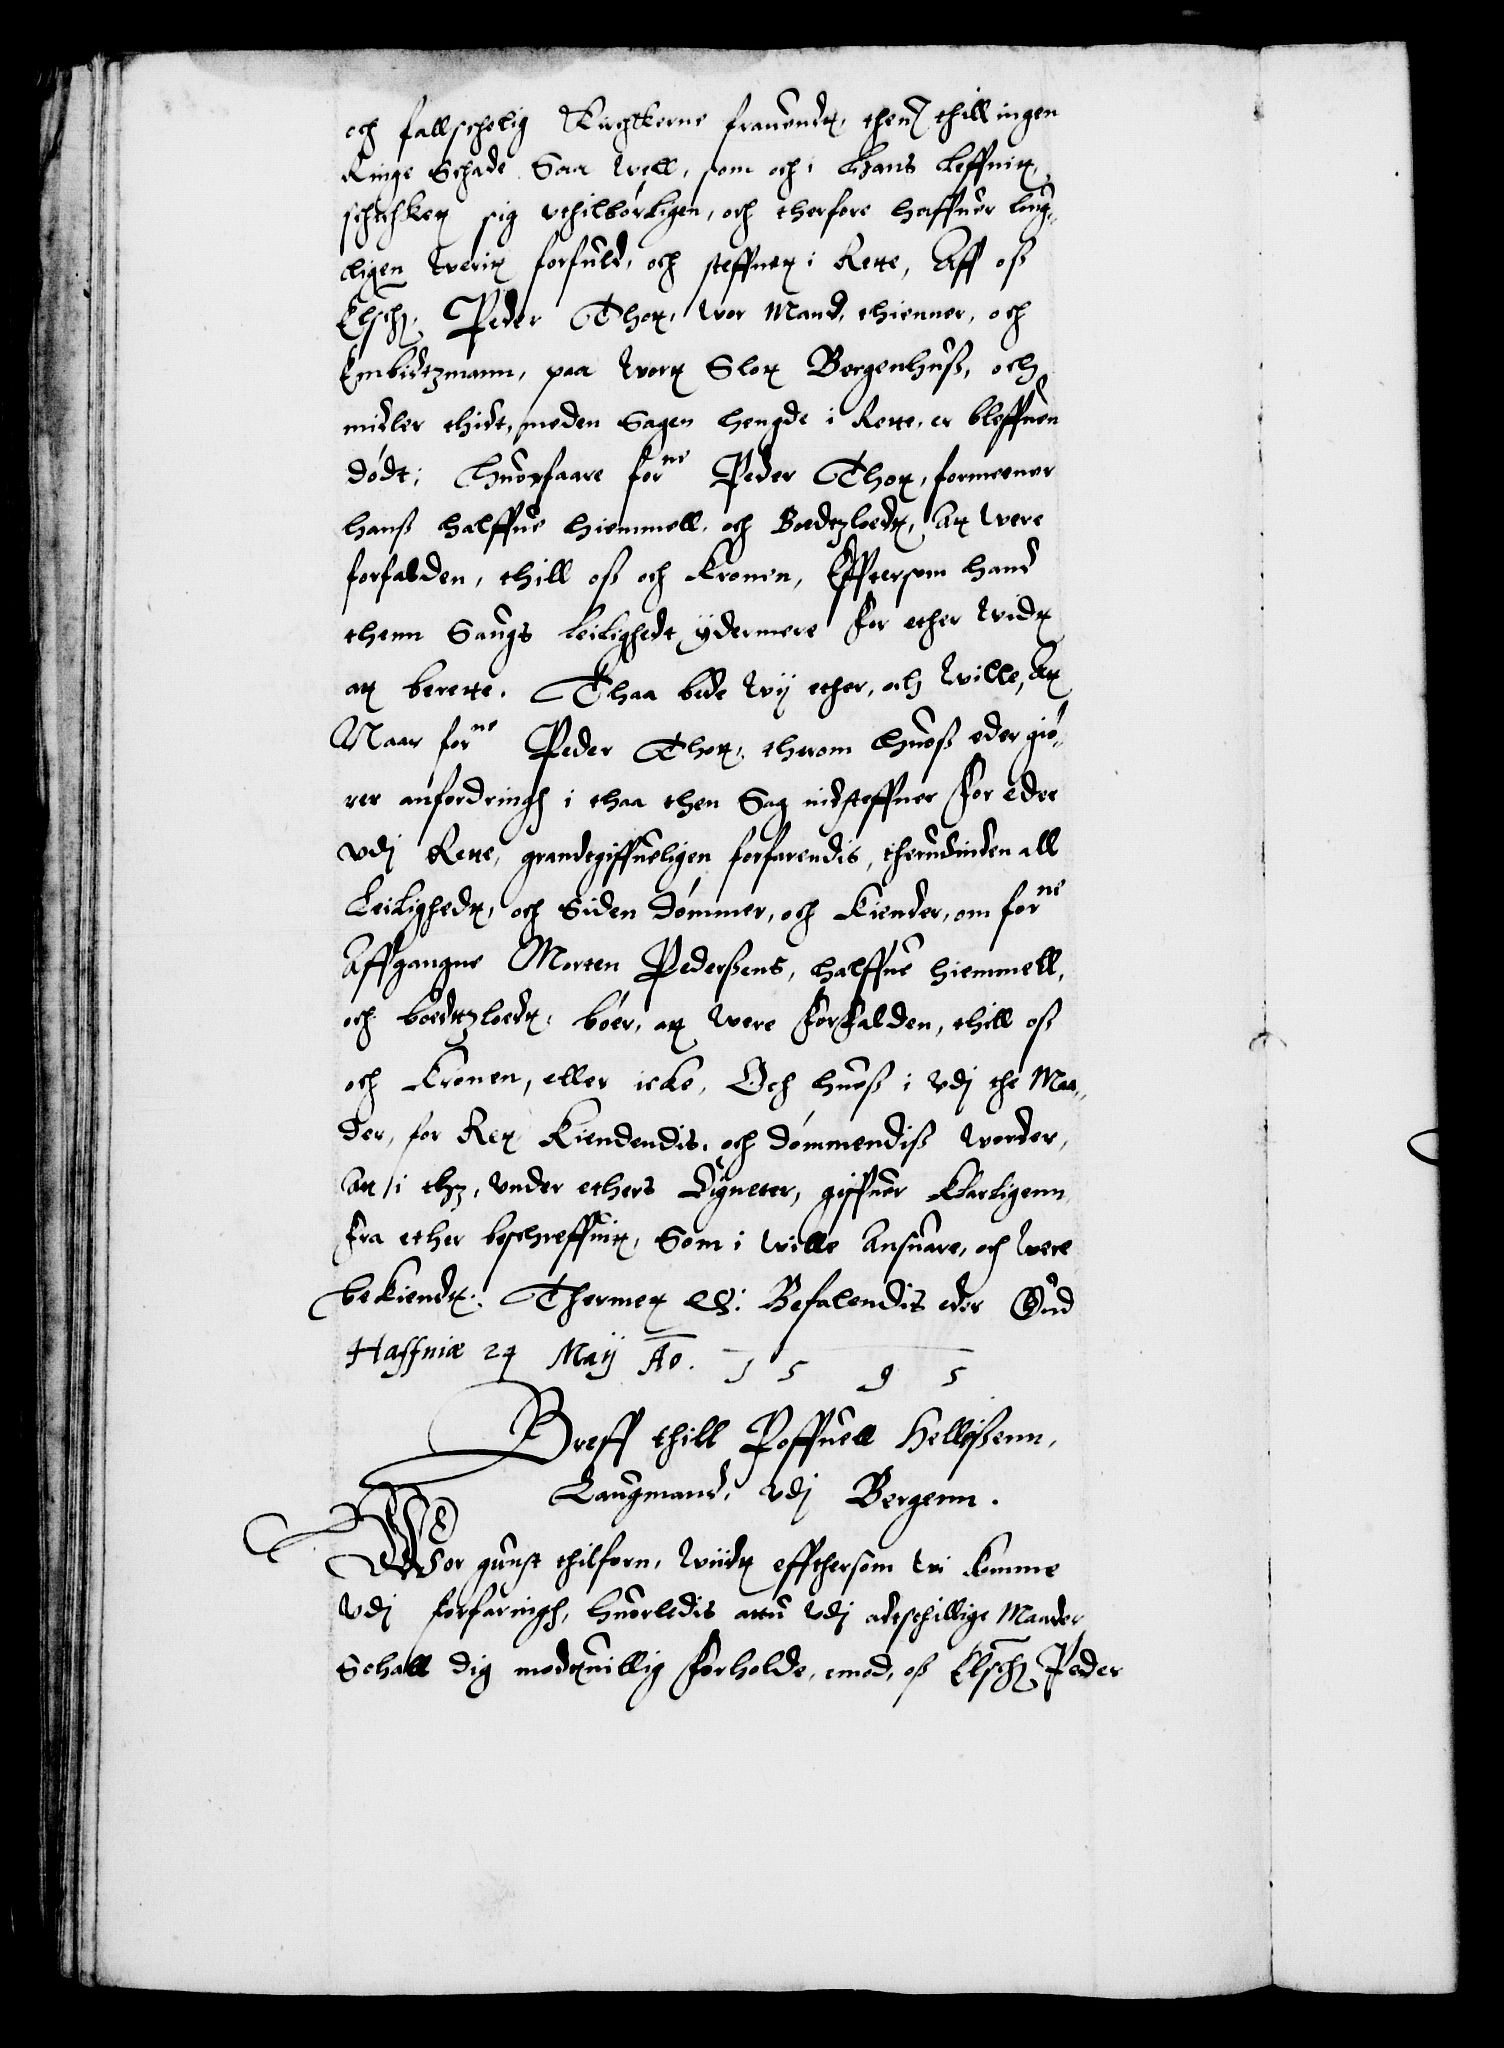 och falschelig Kirchkerne frauendt, thenn thill ingen
Ringe Schade Saa well, som och i Hans leffnit,
schichket sig vthilbórligen, och therfore haffuer laug¬
ligen werit forfuld, och steffnet i Rette, Aff oss
Elsch: Peder Thot, wor Mand, thienner, och
Embidtzmann, paa wort Slot Bergenhuss, och
midler thidt, meden Sagen hengde i Rette, er bleffuen
dódt, huorfaare forne Peder Thot, formeener
hanss halffue hiemmell, och Boedtzloedt, At were
forfalden, thill oss och Kronen, Effttersom hand
thenn Saugs leilighedt ÿdermere for ether widt
at berette. Thaa bede wij ether, och wille, At
Naar forne Peder Thot, therom huoss eder gió¬
rer anfordringh i thaa then Sag indsteffner for eder
vdj Rette, grandtgiffueligen forfarendis, therudinden all
Leilighedt, och Siden dómmer, och Kiender, om forne
Affgangne Morten Pederssens, halffue hiemmell,
och boedtzloedt, bóer, at were forfalden, thill oss
och Kronen, eller icke, Och huess i vdj the Maa¬
der, for Ret Kiendendis, och dómmendiss worder,
At i thz, vnder ethers Signeter, giffuer Klarligenn
fra ether beschreffuit, Som i wille Ansuare, och were
bekiendt. Thermet &: Befalendis eder Gud
Haffniæ 24 Maij Ao. 1595
Breff thill Poffuell Hellissenn,
Laugmand, vdj Bergenn.
Wor gunst thilforn, wiidt effthersom wi komme
vdj forfaringh, huorledis attu vdj adtschillige Maader
Schall dig modtuillig forholde, emod, oss Elsch: Peder